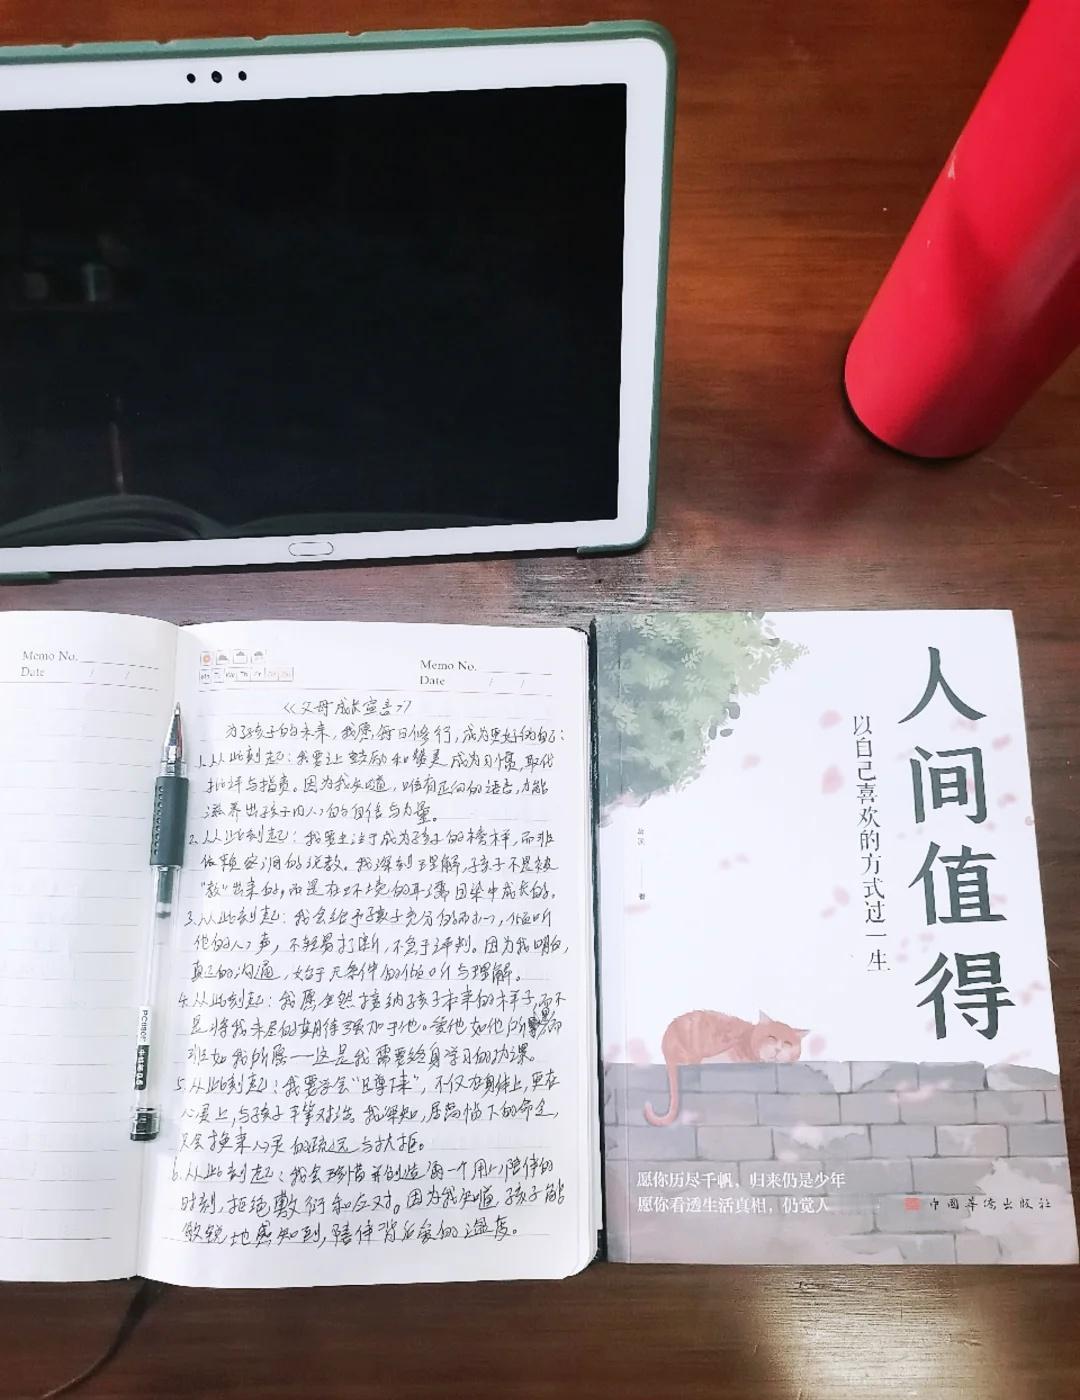 Memo No.
Date / /
Memo No.
Date / /
《父母成长宣言》
为了孩子的未来，我愿每日修行，成为更好的自己：
1.从此刻起：我要让鼓励和赞美成为习惯，取代
批评与指责。因为我知道，唯有正向的语言，才能
滋养出孩子内心的自信与力量。
2.从此刻起：我要专注于成为孩子的榜样，而非
依赖空洞的说教。我深刻理解，孩子不是被
"教"出来的，而是在环境的耳濡目染中成长的。
3.从此刻起：我会给予孩子充分的耐心，倾听
他的心声，不轻易打断，不急于评判。因为我明白，
真正的沟通，始于无条件的倾听与理解。
4.从此刻起：我愿全然接纳孩子本来的样子，而不
是将我未尽的期待强加于他。爱他如他所是，而
非如我所愿——这是我需要终身学习的功课。
5.从此刻起：我要学会"蹲下来"，不仅在身体上，更在
心灵上，与孩子平等对话。我深知，居高临下的命令，
只会换来心灵的疏远与抗拒。
6.从此刻起：我会珍惜并创造每一个用心陪伴的
时刻，拒绝敷衍和应对。因为我知道，孩子能
敏锐地感知到，陪伴背后爱的温度。
人间值得
以自己喜欢的方式过一生
著
愿你历尽千帆，归来仍是少年
愿你看透生活真相，仍觉人
中国华侨出版社